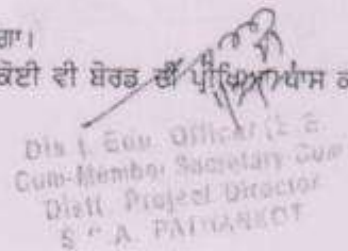 ਗਾ।
ਕੋਈ ਵੀ ਬੋਰਡ ਦੀ ਪ੍ਰੀਖਿਆ ਪਾਸ ਕ
Distt. Edu. Officer (E.E.
Cum-Member Secretary Cum
Distt. Project Director
S.S.A. PATHANKOT